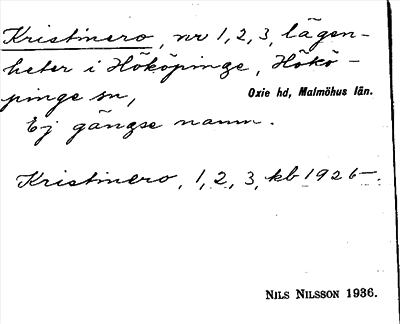 Kristinero, nr 1, 2, 3, lägen-
heter i Hököpinge, Hökö-
pinge sn, Oxie hd, Malmöhus län.
Ej gängse namn.
Kristinero, 1, 2, 3, kb 1926–.
NILS NILSSON 1936.